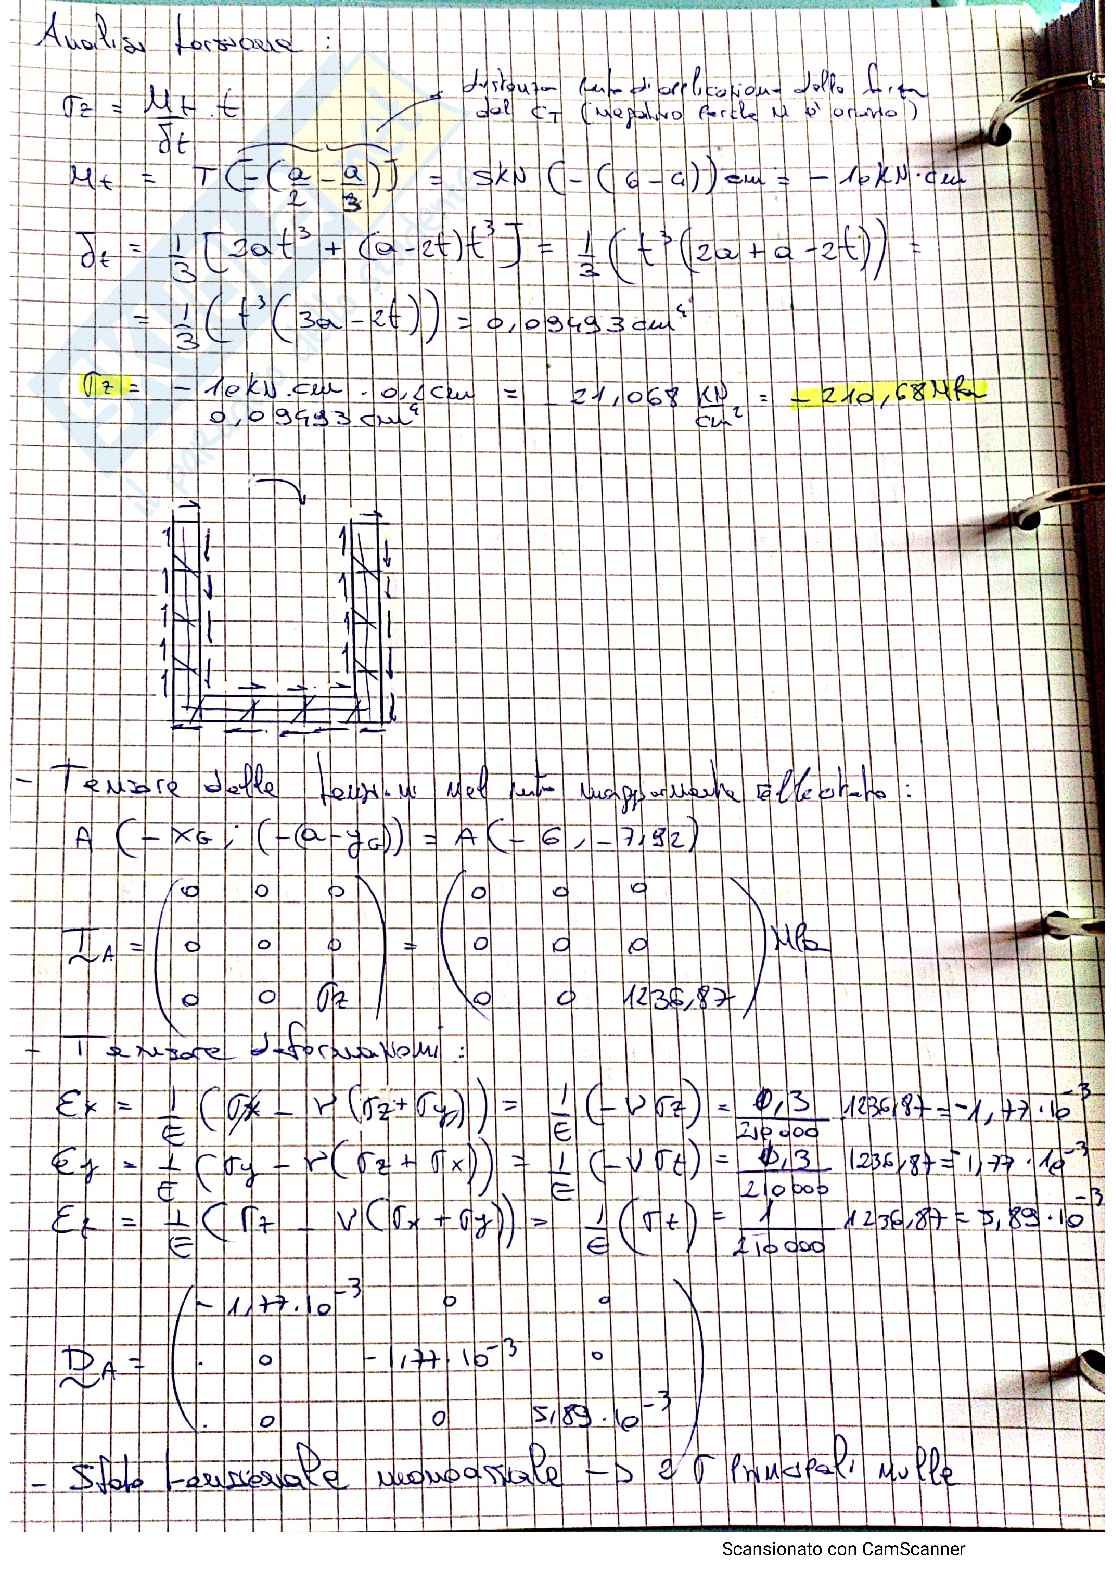 Analisi torsione :
τz = Mt · t
δt
distanza punto d'applicazione della forza
dal CT (negativo perché M è orario)
Mt = T [-(a/2 - a/3)] = 5KN (-(6-4)) cm = - 10KN·cm
Jt = 1/3 [2at³ + (a-2t)t³] = 1/3 (t³(2a+a-2t)) =
= 1/3 (t³(3a-2t)) = 0,09493 cm⁴
τz = - 10KN·cm · 0,2cm = - 21,068 KN/cm² = - 210,68 MPa
0,09493 cm⁴
- Tensore delle tensioni nel punto maggiormente sollecitato :
A (-xG ; (-(a-yG)) = A(-6, -7,92)
0 0 0 0 0 0
TA = 0 0 0 = 0 0 0 MPa
0 0 σz 0 0 1236,87
- Tensore deformazioni :
εx = 1/E (σx - ν(σz+σy)) = 1/E (-νσz) = 0,3/210000 1236,87 = -1,77·10⁻³
εy = 1/E (σy - ν(σz+σx)) = 1/E (-νσz) = 0,3/210000 1236,87 = 1,77·10⁻³
εz = 1/E (σz - ν(σx+σy)) = 1/E (σz) = 1/210000 1236,87 = 5,89·10⁻³
-1,77·10⁻³ 0 0
DA = · 0 -1,77·10⁻³ 0
· 0 0 5,89·10⁻³
- Stato tensionale monoassiale -> 2 σ principali nulle
Scansionato con CamScanner